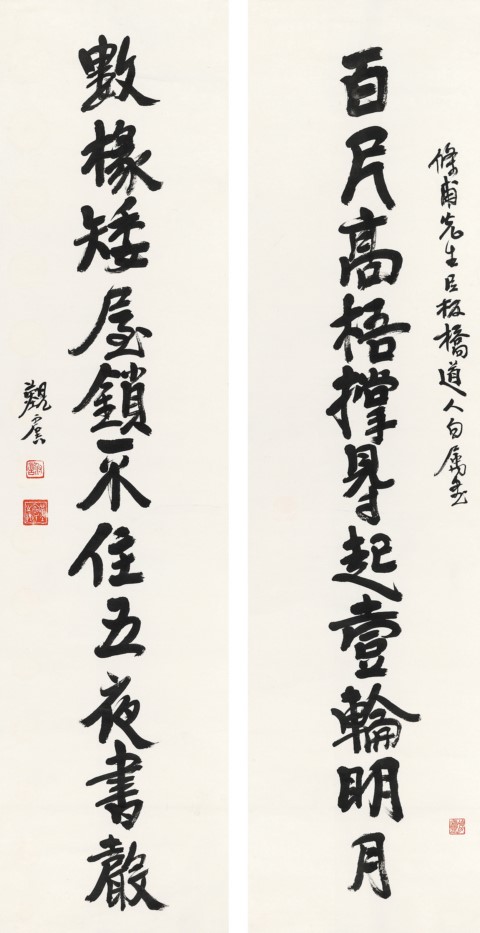 條甫先生㠯板橋道人句屬書
百尺高梧撑㝵起壹輪明月
數椽矮屋鎖不住五夜書聲
觀雲